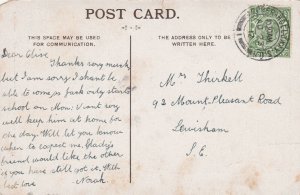 POST CARD.
THIS SPACE MAY BE USED
FOR COMMUNICATION.
THE ADDRESS ONLY TO BE
WRITTEN HERE.
Dear Olive
Thanks very much
but I am sorry I shan't be
able to come, as Jack only starts
school on Mon: & I want very
well keep him at home for
one day. Will let you know
when to expect me. Gladys's
friend would like the other
if you have still got it. With
best love Norah.
Mrs Thirkell
92 Mount Pleasant Road
Lewisham
S.E.